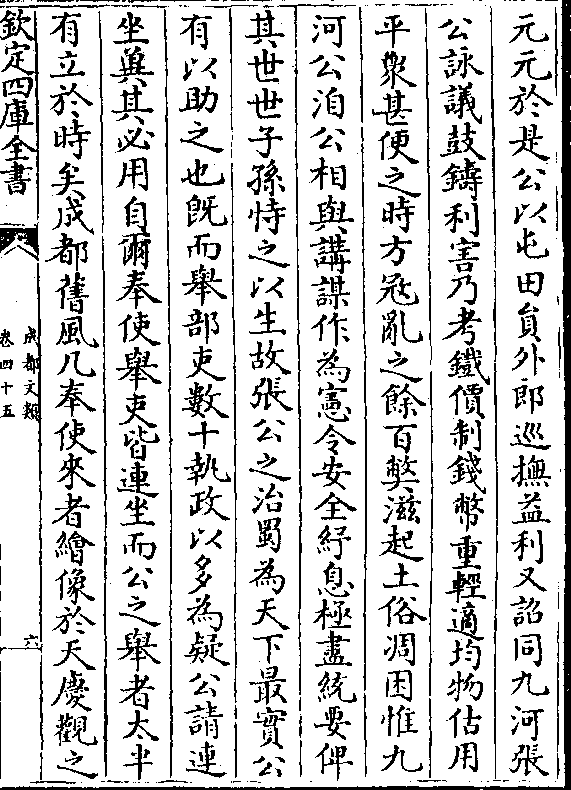 元元於是公以屯田員外郎巡撫益利又詔同九河張
公詠議鼓鑄利害乃考鐵價制錢幣重輕適均物估用
平衆甚便之時方宼亂之餘百弊滋起土俗凋困惟九
河公洎公相與講謀作為憲令安全紓息極盡統要俾
其世世子孫恃之以生故張公之治蜀為天下最實公
有以助之也既而舉部吏數十執政以多為疑公請連
坐兾其必用自爾奉使舉吏皆連坐而公之舉者太半
有立於時矣成都舊風凡奉使來者繪像於天慶觀之
欽定四庫全書
成都文類
卷四十五
六